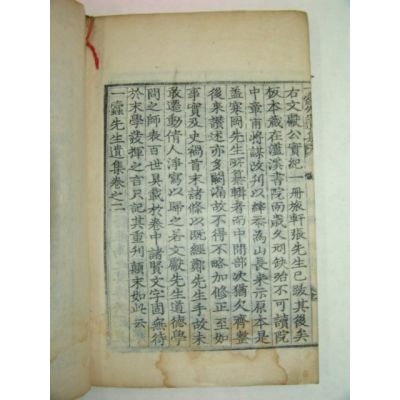 右文獻公實紀一册旅軒張先生已跋其後矣
板本藏在灆溪書院而歲久刓缺殆不可讀院
中章甫將謀改刊以緯忝爲山長來示原本是
盖寒岡先生所纂輯者而中間部次猶欠齊整
後來讚述亦多闕漏故不得不略加修正至如
事實及史禍首末諸條以旣經鄭先生手故未
敢遷動倩人淨寫以歸之若文獻先生道德學
問之師表百世具載於卷中諸賢文字固無待
於末學發揮之言只記其重刊顚末如此云
一蠹先生遺集卷之二